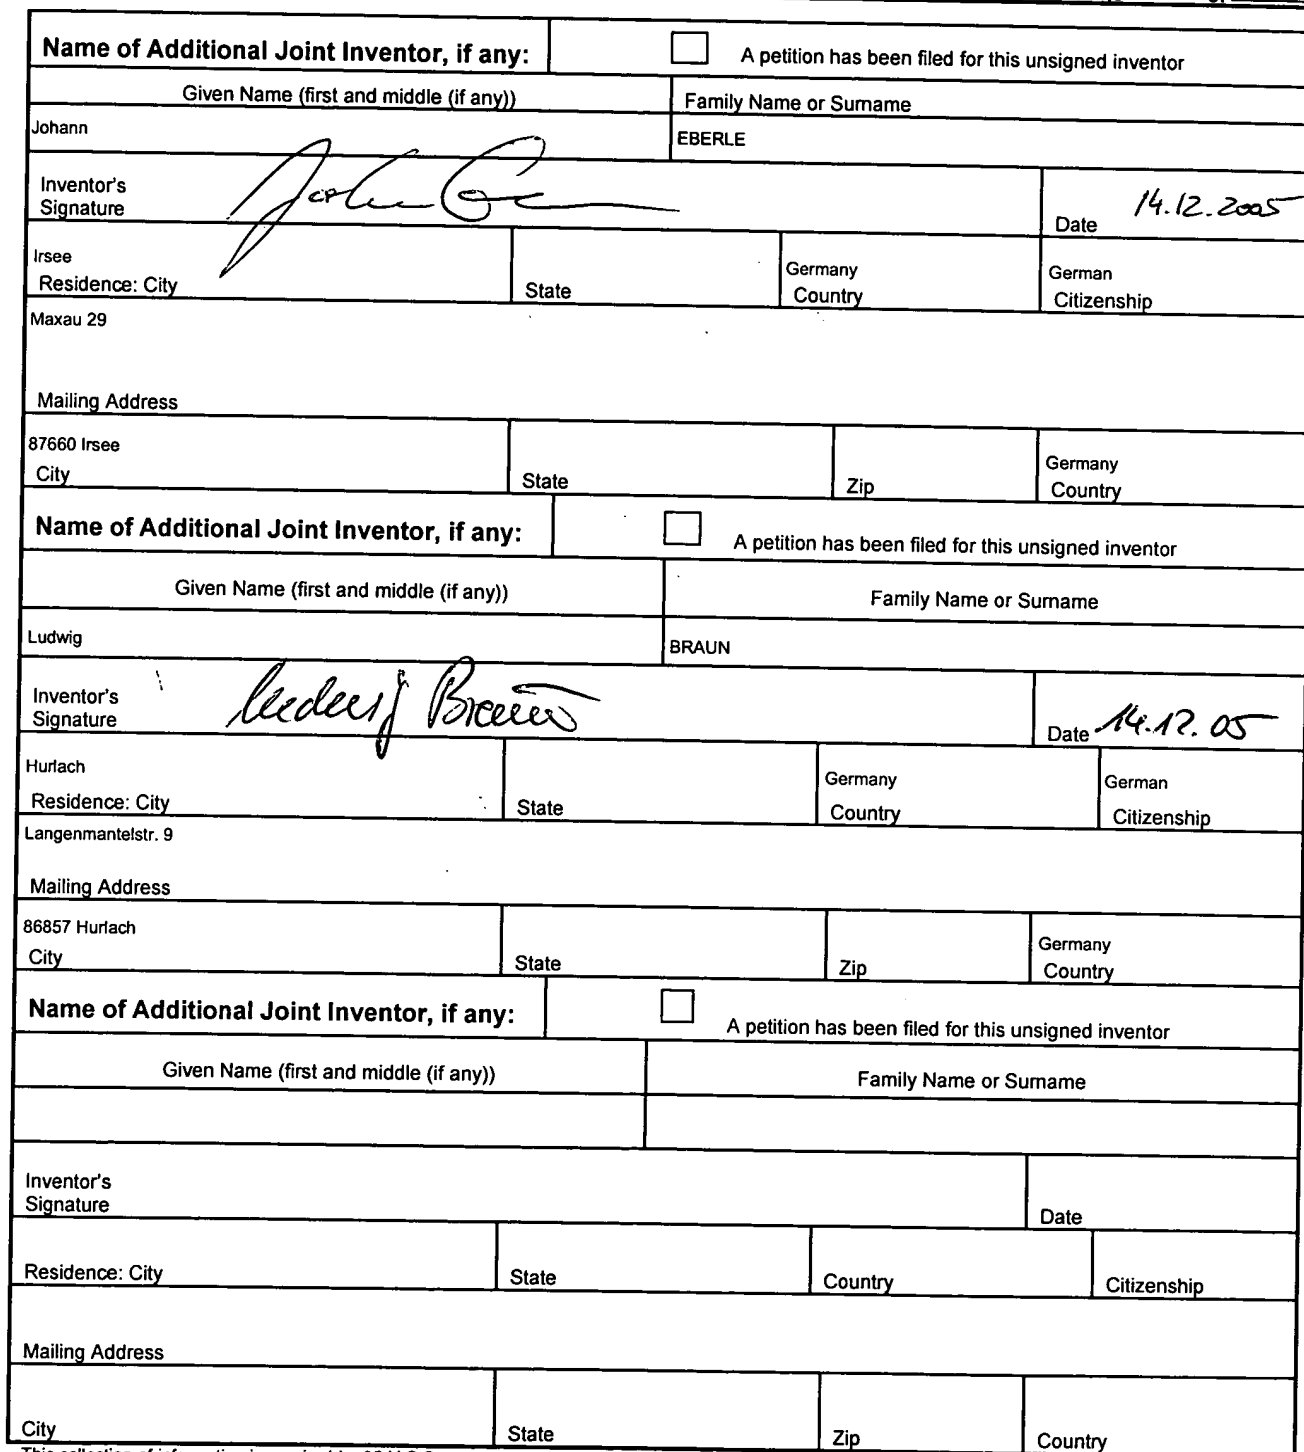 Name of Additional Joint Inventor, if any: A petition has been filed for this unsigned inventor
Given Name (first and middle (if any)) Family Name or Surname
Johann EBERLE
Inventor's
Signature Date 14.12.2005
Irsee Germany German
Residence: City State Country Citizenship
Maxau 29
Mailing Address
87660 Irsee Germany
City State Zip Country
Name of Additional Joint Inventor, if any: A petition has been filed for this unsigned inventor
Given Name (first and middle (if any)) Family Name or Surname
Ludwig BRAUN
Inventor's
Signature Ludwig Braun Date 14.12.05
Hurlach Germany German
Residence: City State Country Citizenship
Langenmantelstr. 9
Mailing Address
86857 Hurlach Germany
City State Zip Country
Name of Additional Joint Inventor, if any: A petition has been filed for this unsigned inventor
Given Name (first and middle (if any)) Family Name or Surname
Inventor's
Signature Date
Residence: City State Country Citizenship
Mailing Address
City State Zip Country